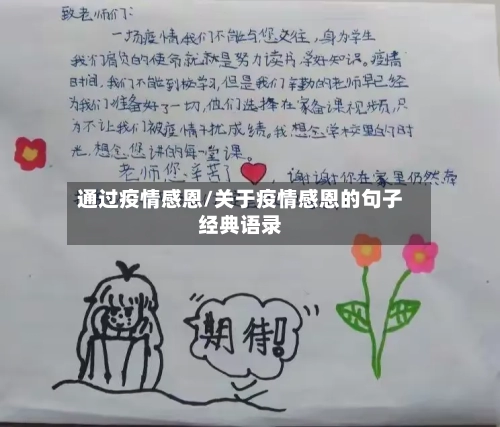 致老师们:
一场疫情我们不能与您交往,身为学生
我们肩负的使命就是努力读书学好知识。疫情
时间,我们不能到校学习,但是我们辛勤的老师早已经
为我们准备好了一切,他们选择在家备课不视频,只
为不让我们被疫情干扰成绩。我想念学校里的时
光,想念您讲的每一堂课。
老师您辛苦了 谢谢你在家里仍然
通过疫情感恩/关于疫情感恩的句子
经典语录
期待!